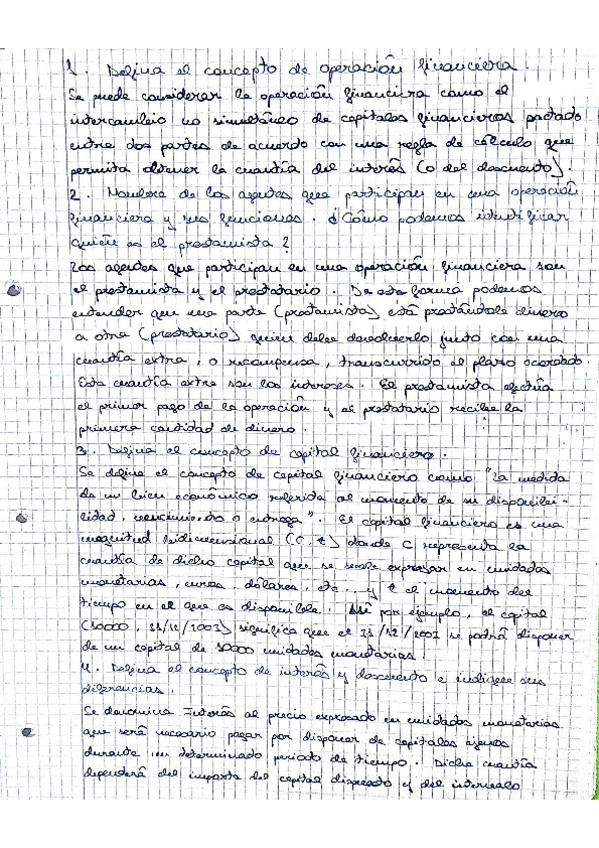 1. Defina el concepto de operación financiera.
Se puede considerar la operación financiera como el
intercambio no simultáneo de capitales financieros pactado
entre dos partes de acuerdo con una regla de cálculo que
permita obtener la cuantía del interés (o del descuento).
2. Nombre de los agentes que participan en una operación
financiera y sus funciones. ¿Cómo podemos identificar
quién es el prestamista?
Los agentes que participan en una operación financiera son
el prestamista y el prestatario. De esta forma podemos
entender que una parte (prestamista) está prestándole dinero
a otra (prestatario) quien debe devolverlo junto con una
cuantía extra, o recompensa, transcurrido el plazo acordado.
Esta cuantía extra son los intereses. El prestamista efectúa
el primer pago de la operación y el prestatario recibe la
primera cantidad de dinero.
3. Defina el concepto de capital financiero.
Se define el concepto de capital financiero como "la medida
de un bien económico referida al momento de su disponibi-
lidad, vencimiento o entrega". El capital financiero es una
magnitud bidimensional (C, t) donde C representa la
cuantía de dicho capital que se suele expresar en unidades
monetarias, euros, dólares, etc... y t el momento del
tiempo en el que es disponible. Así por ejemplo, el capital
significa que el se podrá disponer
de un capital de unidades monetarias.
4. Defina el concepto de interés y descuento e indique sus
diferencias.
Se denomina Interés al precio expresado en unidades monetarias
que será necesario pagar por disponer de capitales ajenos
durante un determinado periodo de tiempo. Dicha cuantía
dependerá del importe del capital dispuesto y del intervalo